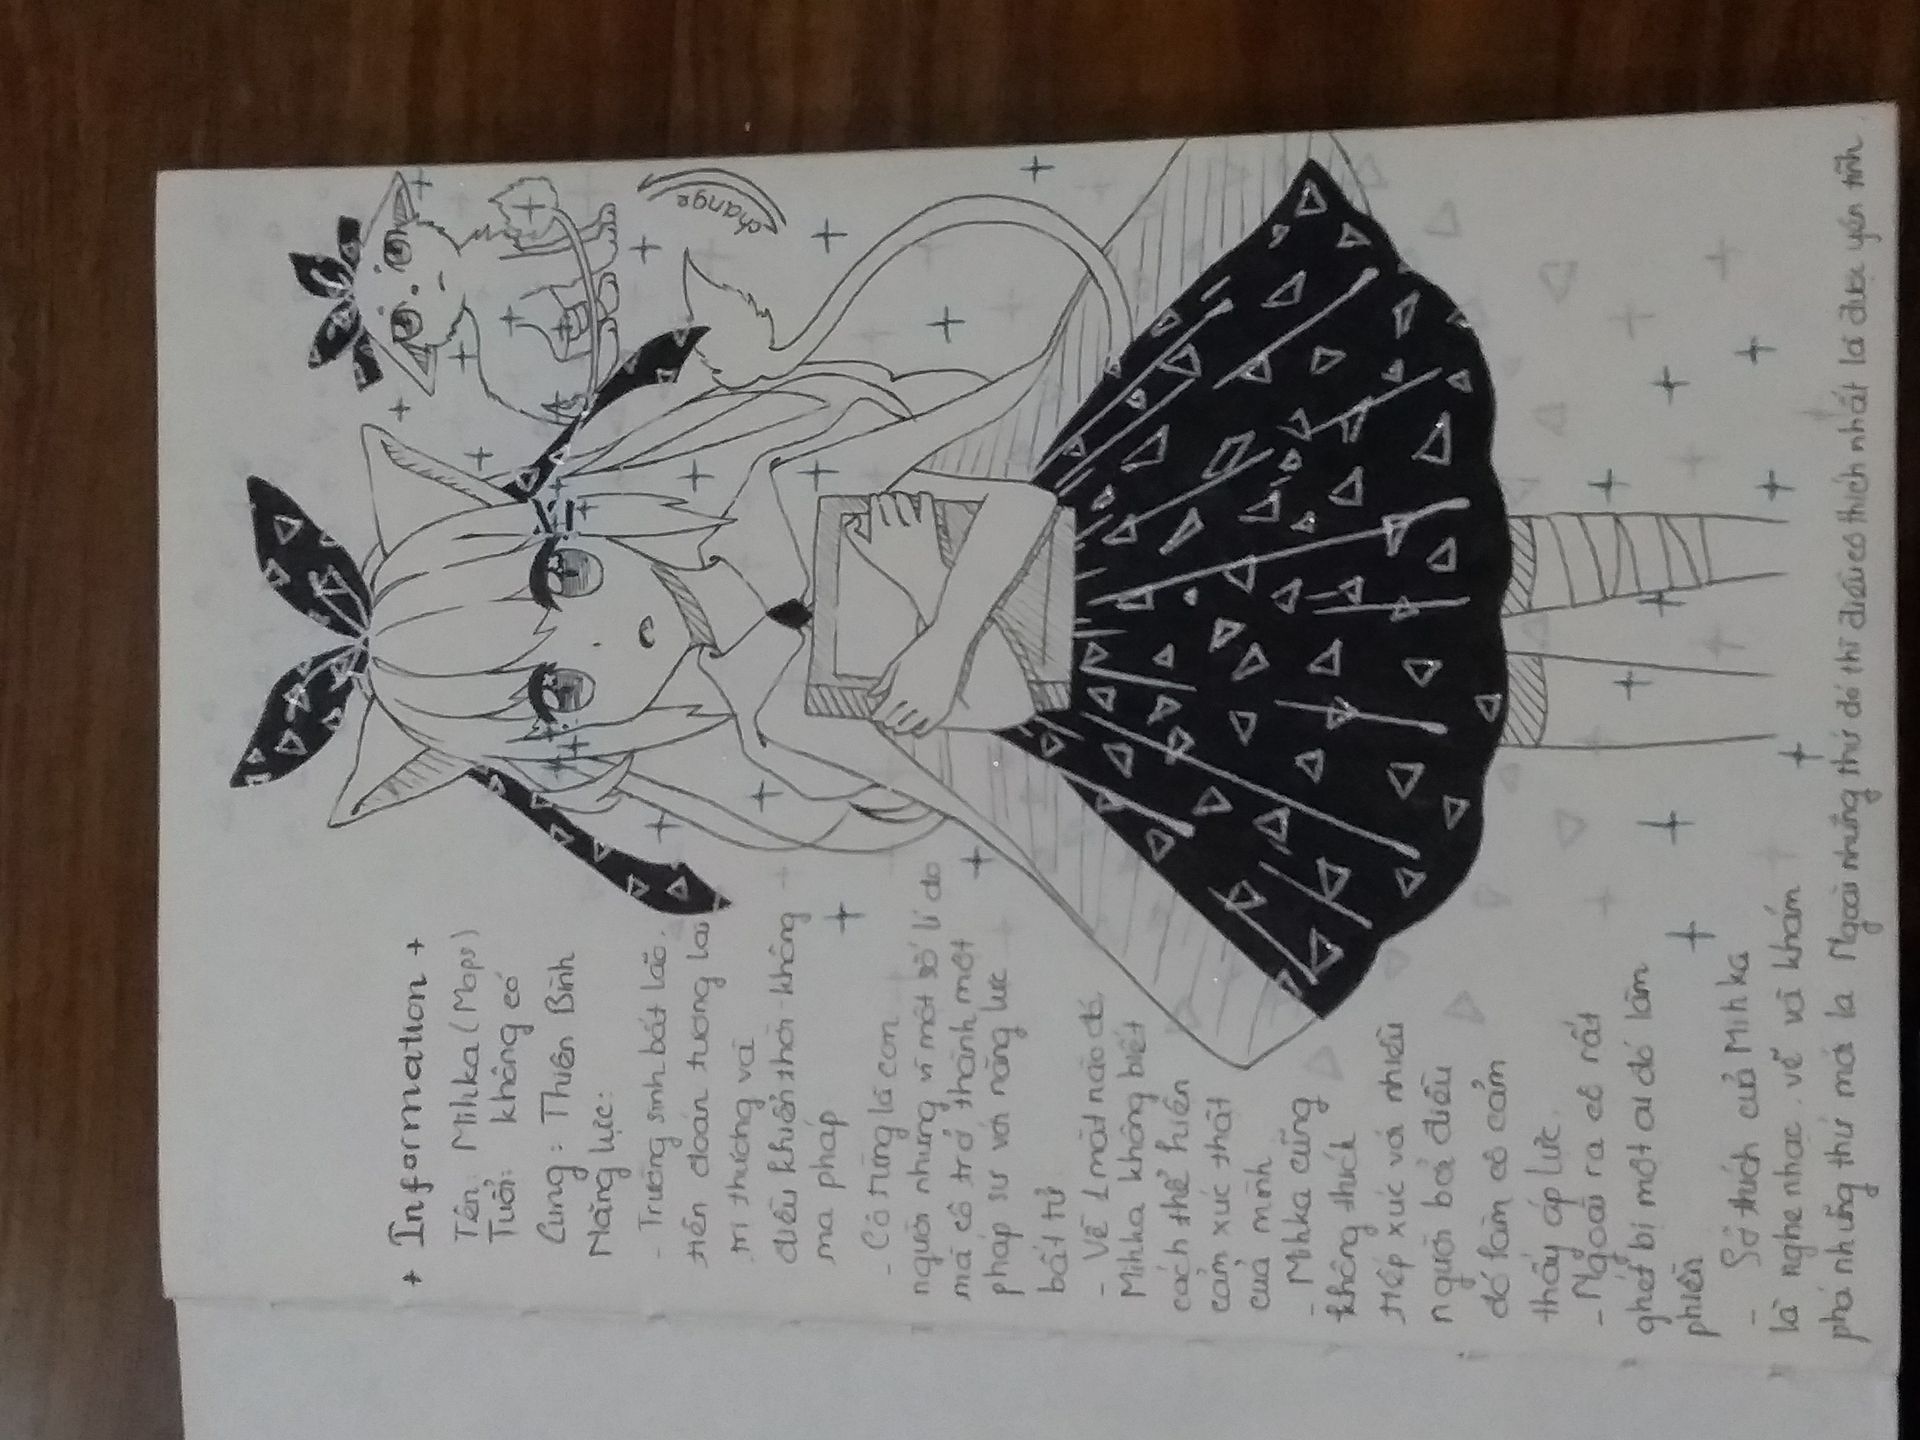 + Information +
Tên: Mihka (Mops)
Tuổi: không có
Cung: Thiên Bình
Năng lực:
- Trường sinh bất lão,
tiên đoán tương lai
trị thương và
điều khiển thời không
ma pháp
- Cô từng là con
người nhưng vì một số lí do
mà cô trở thành một
pháp sư với năng lực
bất tử
- Về 1 mặt nào đó,
Mihka không biết
cách thể hiện
cảm xúc thật
của mình
- Mihka cũng
không thích
tiếp xúc với nhiều
người bởi điều
đó làm cô cảm
thấy áp lực.
- Ngoài ra cô rất
ghét bị một ai đó làm
phiền
- Sở thích của Mihka
là nghe nhạc, vẽ và khám
phá những thứ mới lạ. Ngoài những thứ đó thì điều cô thích nhất là được yên tĩnh.
change